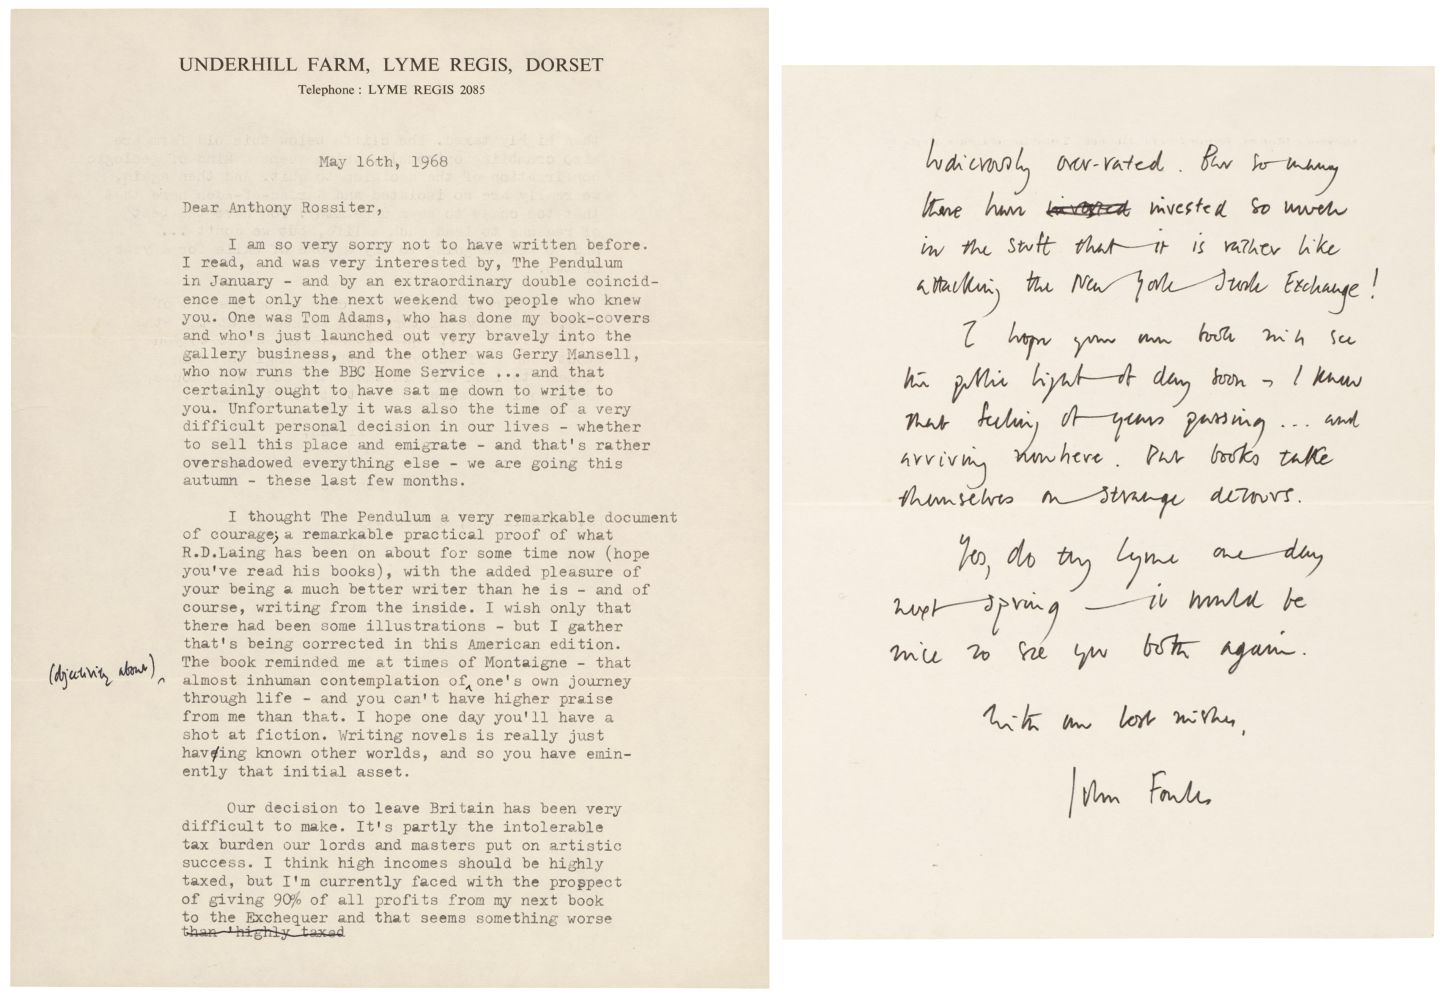 UNDERHILL FARM, LYME REGIS, DORSET
Telephone : LYME REGIS 2085
May 16th, 1968
Dear Anthony Rossiter,
I am so very sorry not to have written before.
I read, and was very interested by, The Pendulum
in January - and by an extraordinary double coincid-
ence met only the next weekend two people who knew
you. One was Tom Adams, who has done my book-covers
and who's just launched out very bravely into the
gallery business, and the other was Gerry Mansell,
who now runs the BBC Home Service ... and that
certainly ought to have sat me down to write to
you. Unfortunately it was also the time of a very
difficult personal decision in our lives - whether
to sell this place and emigrate - and that's rather
overshadowed everything else - we are going this
autumn - these last few months.
I thought The Pendulum a very remarkable document
of courage; a remarkable practical proof of what
R.D.Laing has been on about for some time now (hope
you've read his books), with the added pleasure of
your being a much better writer than he is - and of
course, writing from the inside. I wish only that
there had been some illustrations - but I gather
that's being corrected in this American edition.
The book reminded me at times of Montaigne - that
(objectivity about)
almost inhuman contemplation of one's own journey
through life - and you can't have higher praise
from me than that. I hope one day you'll have a
shot at fiction. Writing novels is really just
having known other worlds, and so you have emin-
ently that initial asset.
Our decision to leave Britain has been very
difficult to make. It's partly the intolerable
tax burden our lords and masters put on artistic
success. I think high incomes should be highly
taxed, but I'm currently faced with the prospect
of giving 90% of all profits from my next book
to the Exchequer and that seems something worse
than 'highly taxed
ludicrously over-rated. But so many
there have invested so much
in the stuff that it is rather like
attacking the New York Stock Exchange!
I hope your own book will see
the public light of day soon - I know
that feeling of years passing ... and
arriving nowhere. But books take
themselves on strange detours.
Yes, do try Lyme one day
next spring — it would be
nice to see you both again.
With our best wishes,
John Fowles